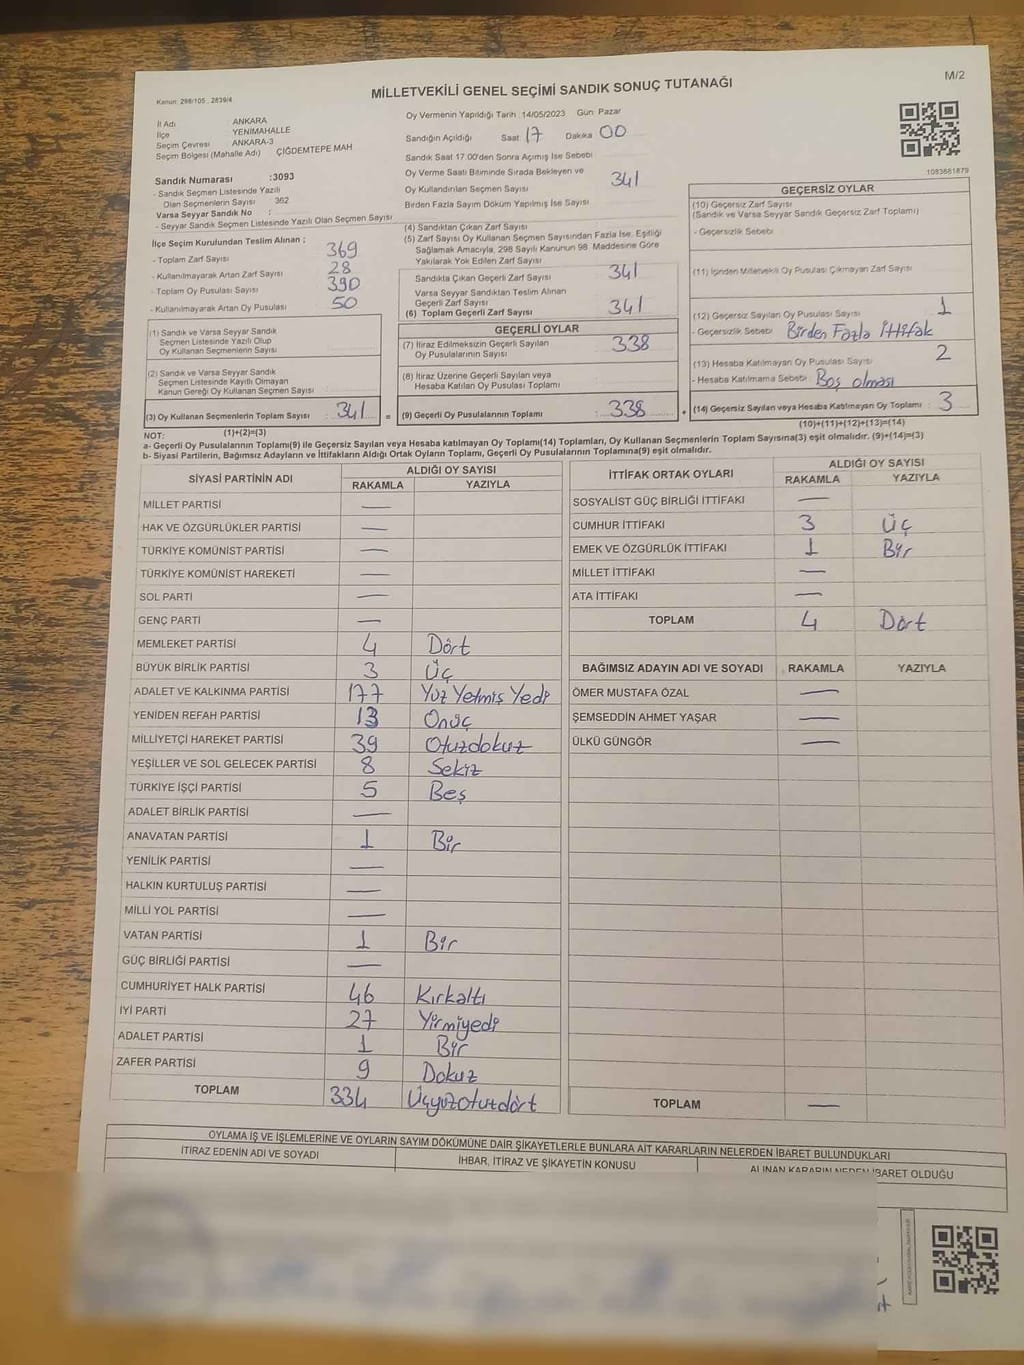 M/2
Kanun: 298/105 , 2839/4
MİLLETVEKİLİ GENEL SEÇİMİ SANDIK SONUÇ TUTANAĞI
İl Adı ANKARA
İlçe YENİMAHALLE
Seçim Çevresi ANKARA-3
Seçim Bölgesi (Mahalle Adı) ÇİĞDEMTEPE MAH
Sandık Numarası :3093
- Sandık Seçmen Listesinde Yazılı
Olan Seçmenlerin Sayısı 362
Varsa Seyyar Sandık No :
- Seyyar Sandık Seçmen Listesinde Yazılı Olan Seçmen Sayısı :
İlçe Seçim Kurulundan Teslim Alınan ;
- Toplam Zarf Sayısı : 369
- Kullanılmayarak Artan Zarf Sayısı : 28
- Toplam Oy Pusulası Sayısı : 390
- Kullanılmayarak Artan Oy Pusulası : 50
(1) Sandık ve Varsa Seyyar Sandık
Seçmen Listesinde Yazılı Olup
Oy Kullanan Seçmenlerin Sayısı :
(2) Sandık ve Varsa Seyyar Sandık
Seçmen Listesinde Kayıtlı Olmayan
Kanun Gereği Oy Kullanan Seçmen Sayısı :
(3) Oy Kullanan Seçmenlerin Toplam Sayısı : 341 =
(1)+(2)=(3)
Oy Vermenin Yapıldığı Tarih :14/05/2023 Gün: Pazar
Sandığın Açıldığı Saat 17 Dakika 00
Sandık Saat 17.00'den Sonra Açılmış İse Sebebi
Oy Verme Saati Bitiminde Sırada Bekleyen ve
Oy Kullandırılan Seçmen Sayısı 341
Birden Fazla Sayım Döküm Yapılmış İse Sayısı
(4) Sandıktan Çıkan Zarf Sayısı
(5) Zarf Sayısı Oy Kullanan Seçmen Sayısından Fazla İse, Eşitliği
Sağlamak Amacıyla, 298 Sayılı Kanunun 98. Maddesine Göre
Yakılarak Yok Edilen Zarf Sayısı
Sandıkta Çıkan Geçerli Zarf Sayısı 341
Varsa Seyyar Sandıktan Teslim Alınan
Geçerli Zarf Sayısı
(6) Toplam Geçerli Zarf Sayısı 341
GEÇERLİ OYLAR
(7) İtiraz Edilmeksizin Geçerli Sayılan
Oy Pusulalarının Sayısı : 338
(8) İtiraz Üzerine Geçerli Sayılan veya
Hesaba Katılan Oy Pusulası Toplamı :
(9) Geçerli Oy Pusulalarının Toplamı : 338 +
1083681879
GEÇERSİZ OYLAR
(10) Geçersiz Zarf Sayısı
(Sandık ve Varsa Seyyar Sandık Geçersiz Zarf Toplamı)
- Geçersizlik Sebebi
(11) İçinden Milletvekili Oy Pusulası Çıkmayan Zarf Sayısı
(12) Geçersiz Sayılan Oy Pusulası Sayısı 1
- Geçersizlik Sebebi Birden Fazla İttifak
(13) Hesaba Katılmayan Oy Pusulası Sayısı 2
- Hesaba Katılmama Sebebi Boş olması
(14) Geçersiz Sayılan veya Hesaba Katılmayan Oy Toplamı : 3
(10)+(11)+(12)+(13)=(14)
NOT:
a- Geçerli Oy Pusulalarının Toplamı(9) ile Geçersiz Sayılan veya Hesaba katılmayan Oy Toplamı(14) Toplamları, Oy Kullanan Seçmenlerin Toplam Sayısına(3) eşit olmalıdır. (9)+(14)=(3)
b- Siyasi Partilerin, Bağımsız Adayların ve İttifakların Aldığı Ortak Oyların Toplamı, Geçerli Oy Pusulalarının Toplamına(9) eşit olmalıdır.
SİYASİ PARTİNİN ADI ALDIĞI OY SAYISI
RAKAMLA YAZIYLA
MİLLET PARTİSI —
HAK VE ÖZGÜRLÜKLER PARTİSİ —
TÜRKİYE KOMÜNİST PARTİSİ —
TÜRKİYE KOMÜNİST HAREKETİ —
SOL PARTİ —
GENÇ PARTİ —
MEMLEKET PARTİSİ 4 Dört
BÜYÜK BİRLİK PARTİSİ 3 Üç
ADALET VE KALKINMA PARTİSİ 177 Yüz Yetmiş Yedi
YENİDEN REFAH PARTİSİ 13 Onüç
MİLLİYETÇİ HAREKET PARTİSİ 39 Otuzdokuz
YEŞİLLER VE SOL GELECEK PARTİSİ 8 Sekiz
TÜRKİYE İŞÇİ PARTİSİ 5 Beş
ADALET BİRLİK PARTİSİ —
ANAVATAN PARTİSİ 1 Bir
YENİLİK PARTİSİ —
HALKIN KURTULUŞ PARTİSİ —
MİLLİ YOL PARTİSİ —
VATAN PARTİSİ 1 Bir
GÜÇ BİRLİĞİ PARTİSİ —
CUMHURİYET HALK PARTİSİ 46 Kırkaltı
İYİ PARTİ 27 Yirmiyedi
ADALET PARTİSİ 1 Bir
ZAFER PARTİSİ 9 Dokuz
TOPLAM 334 Üçyüzotuzdört
İTTİFAK ORTAK OYLARI ALDIĞI OY SAYISI
RAKAMLA YAZIYLA
SOSYALİST GÜÇ BİRLİĞİ İTTİFAKI —
CUMHUR İTTİFAKI 3 Üç
EMEK VE ÖZGÜRLÜK İTTİFAKI 1 Bir
MİLLET İTTİFAKI —
ATA İTTİFAKI —
TOPLAM 4 Dört
BAĞIMSIZ ADAYIN ADI VE SOYADI RAKAMLA YAZIYLA
ÖMER MUSTAFA ÖZAL —
ŞEMSEDDİN AHMET YAŞAR —
ÜLKÜ GÜNGÖR —
TOPLAM —
OYLAMA İŞ VE İŞLEMLERİNE VE OYLARIN SAYIM DÖKÜMÜNE DAİR ŞİKAYETLERLE BUNLARA AİT KARARLARIN NELERDEN İBARET BULUNDUKLARI
İTİRAZ EDENİN ADI VE SOYADI İHBAR, İTİRAZ VE ŞİKAYETİN KONUSU ALINAN KARARIN NEDEN İBARET OLDUĞU